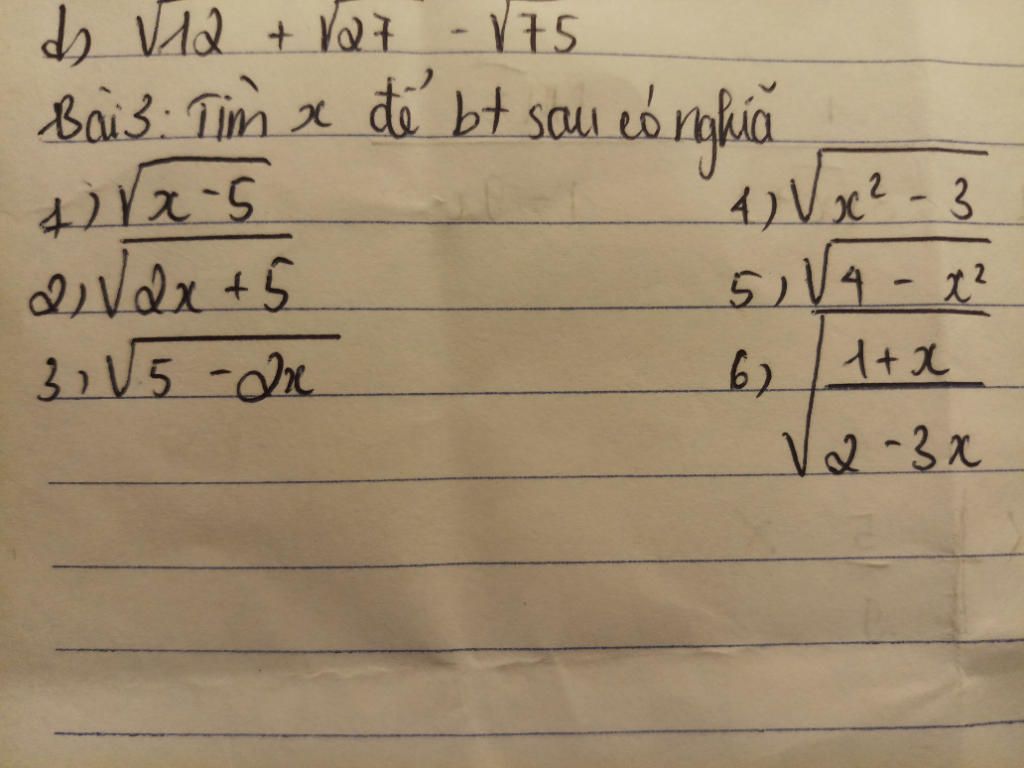 d) √12 + √27 - √75
Bài 3: Tìm x để bt sau có nghiã
1) √(x - 5)
2) √(2x + 5)
3) √(5 - 2x)
4) √(x² - 3)
5) √(4 - x²)
6) √((1 + x)/(2 - 3x))